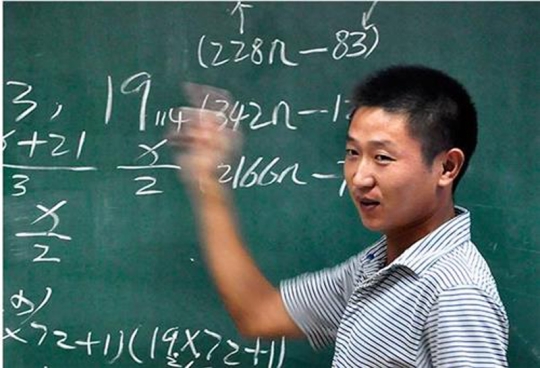 (228n-83)
3, 19, 114 (342n-1
+21 x (2166n-
3 2
x
2
x72+1)(19x72+1)